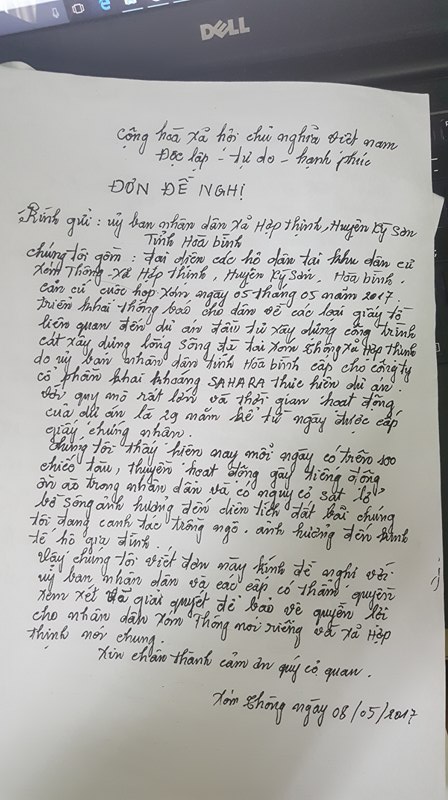 DELL
Cộng hoà xã hội chủ nghĩa việt nam
Độc lập - tự do - hạnh phúc
ĐƠN ĐỀ NGHỊ
Kính gửi: uỷ ban nhân dân xã Hợp thịnh, Huyện Kỳ Sơn
Tỉnh Hoà bình
chúng tôi gồm: đại diện các hộ dân tại khu dân cư
xóm Thông xã Hợp Thịnh, Huyện Kỳ Sơn, Hoà bình.
căn cứ cuộc họp xóm ngày 05 tháng 05 năm 2017.
triển khai thông báo cho dân về các loại giấy tờ
liên quan đến dự án đầu tư xây dựng công trình
cát xây dựng lòng sông đà tại xóm thông xã Hợp thịnh
do uỷ ban nhân dân tỉnh Hoà bình cấp cho công ty
cổ phần khai khoáng SAHARA thực hiện dự án
với quy mô rất lớn và thời gian hoạt động
của dự án là 29 năm kể từ ngày được cấp
giấy chứng nhân.
chúng tôi thấy hiện nay mỗi ngày có trên 100
chiếc tàu, thuyền hoạt động gây tiếng động
ồn ào trong nhân dân và có nguy cơ sạt lở
bờ sông ảnh hưởng đến diện tích đất bãi chúng
tôi đang canh tác trồng ngô. ảnh hưởng đến kinh
tế hộ gia đình.
Vậy chúng tôi viết đơn này kính đề nghị với
uỷ ban nhân dân và các cấp có thẩm quyền
xem xét và giải quyết để bảo vệ quyền lợi
cho nhân dân xóm Thông nói riêng và xã Hợp
thịnh nói chung.
Xin chân thành cảm ơn quý cơ quan.
Xóm thông ngày 08/05/2017